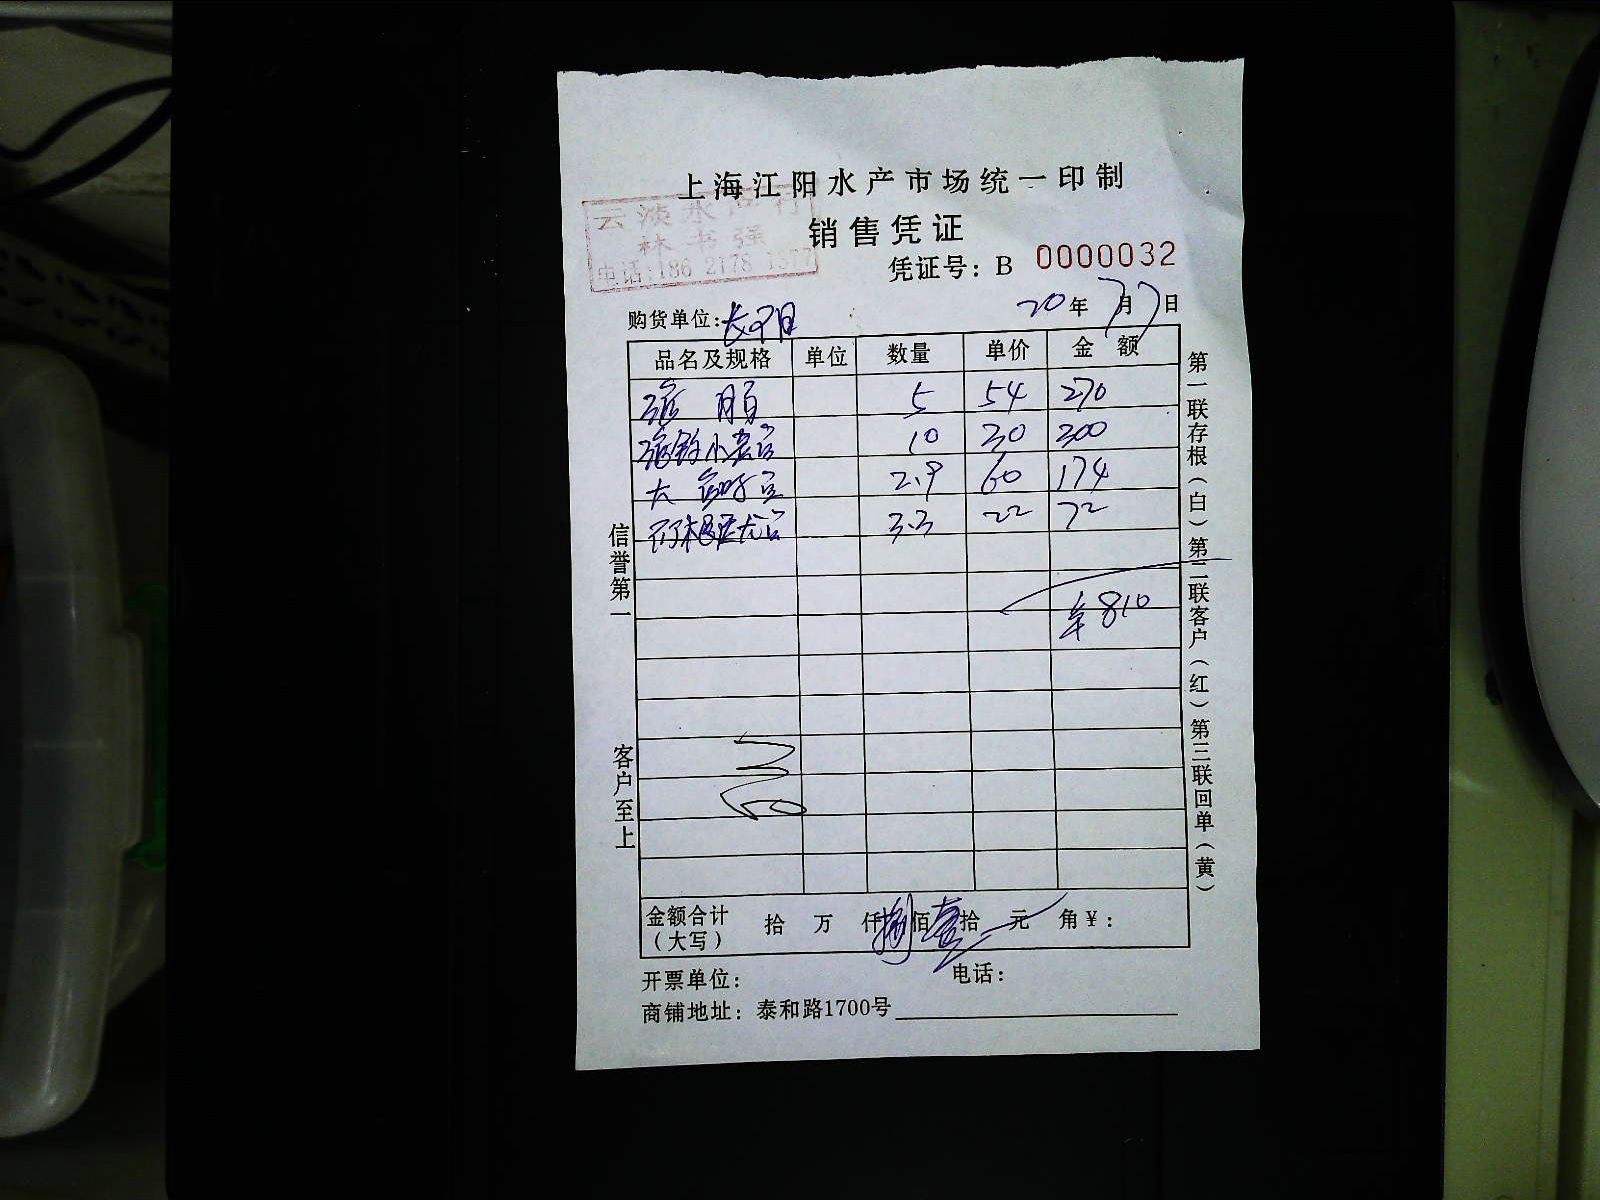 上海江阳水产市场统一印制
云淡水产行
林书强
电话:186 2178 1377
销售凭证
凭证号：B 0000032
购货单位:
20年7月7日
品名及规格 单位 数量 单价 金额
5 54 270
10 30 300
大 2.9 60 174
3.3 22 72
¥810
金额合计（大写） 拾 万 仟捌佰壹拾 元 角￥：
开票单位： 电话：
商铺地址：泰和路1700号
信誉第一
客户至上
第一联存根（白）第二联客户（红）第三联回单（黄）